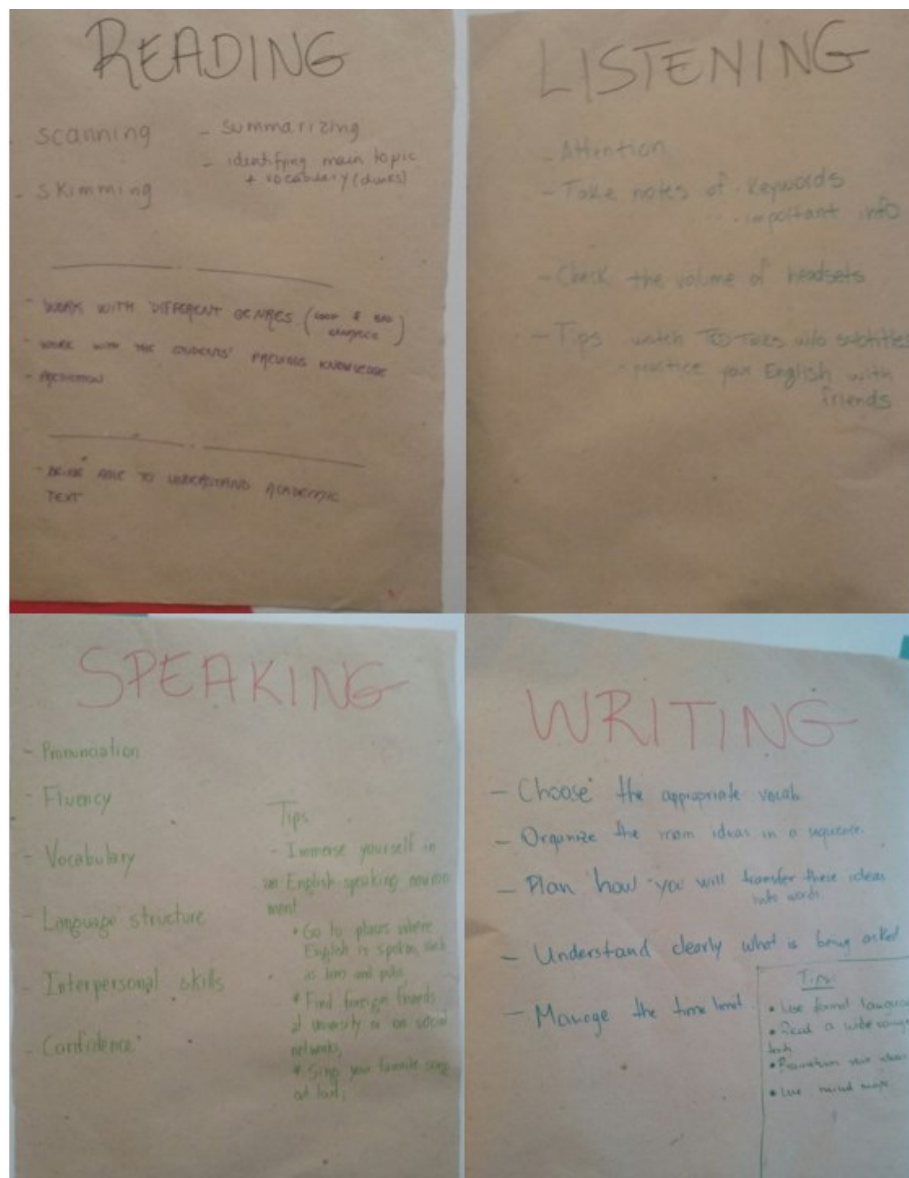 READING
- scanning
- skimming
- summarizing
- identifying main topic
+ vocabulary (clues)
- WORK WITH DIFFERENT GENRES (GOOD & BAD
- WORK WITH THE STUDENTS' PREVIOUS KNOWLEDGE
- PREDICTION
ABLE TO UNDERSTAND ACADEMIC
TEXT
LISTENING
- Attention
- Take notes of . keywords
. important info
- Check the volume of headsets
- Tips watch TED Talks w/o subtitles
- practice your English with
friends
SPEAKING
- Pronunciation
- Fluency
- Vocabulary
- Language structure
- Interpersonal skills
- Confidence
Tips
- Immerse yourself in
an English-speaking environ
ment
* Go to places where
English is spoken, such
as bars and pubs.
* Find foreign friends
at university or on social
networks,
* Sing your favorite song
out loud,
WRITING
- Choose the appropriate vocab.
- Organize the main ideas in a sequence.
- Plan how you will transfer these ideas
into words
- Understand clearly what is being asked.
- Manage the time limit.
Tips:
• Use formal language
• Read a wide range
texts
• your ideas
• Use mind maps